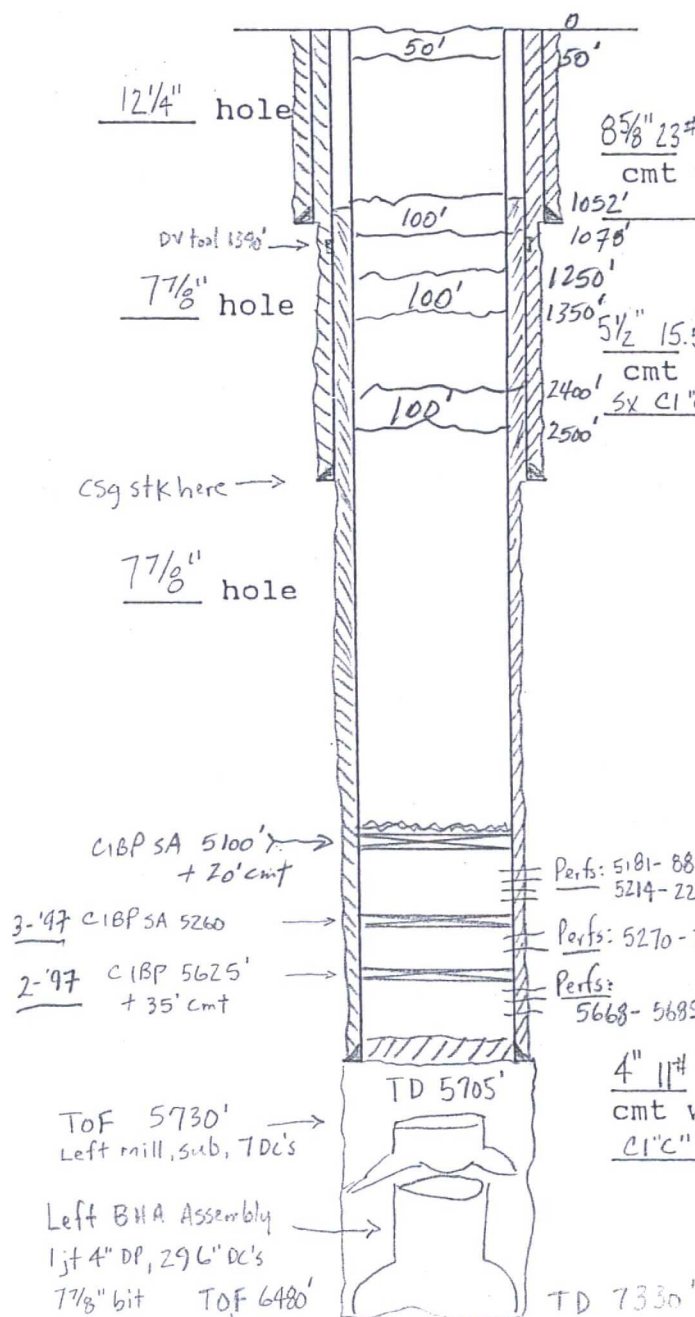 0
50' 50'
12 1/4" hole
8 5/8" 23#
cmt
1052'
100'
1078'
DV tool 1390'
1250'
7 7/8" hole
100'
1350'
5 1/2" 15.5
cmt
2400'
sx Cl "C
100'
2500'
csg stk here
7 7/8" hole
CIBP SA 5100'
+ 20' cmt
Perfs: 5181-88
5214-22
3-'97 CIBP SA 5260
Perfs: 5270-
2-'97 CIBP 5625'
+ 35' cmt
Perfs:
5668-5685
TD 5705'
4" 11#
cmt w
Cl "C"
TOF 5730'
Left mill, sub, 7 DC's
Left BHA Assembly
1 jt 4" DP, 29 6" DC's
7 7/8" bit TOF 6480'
TD 7330'